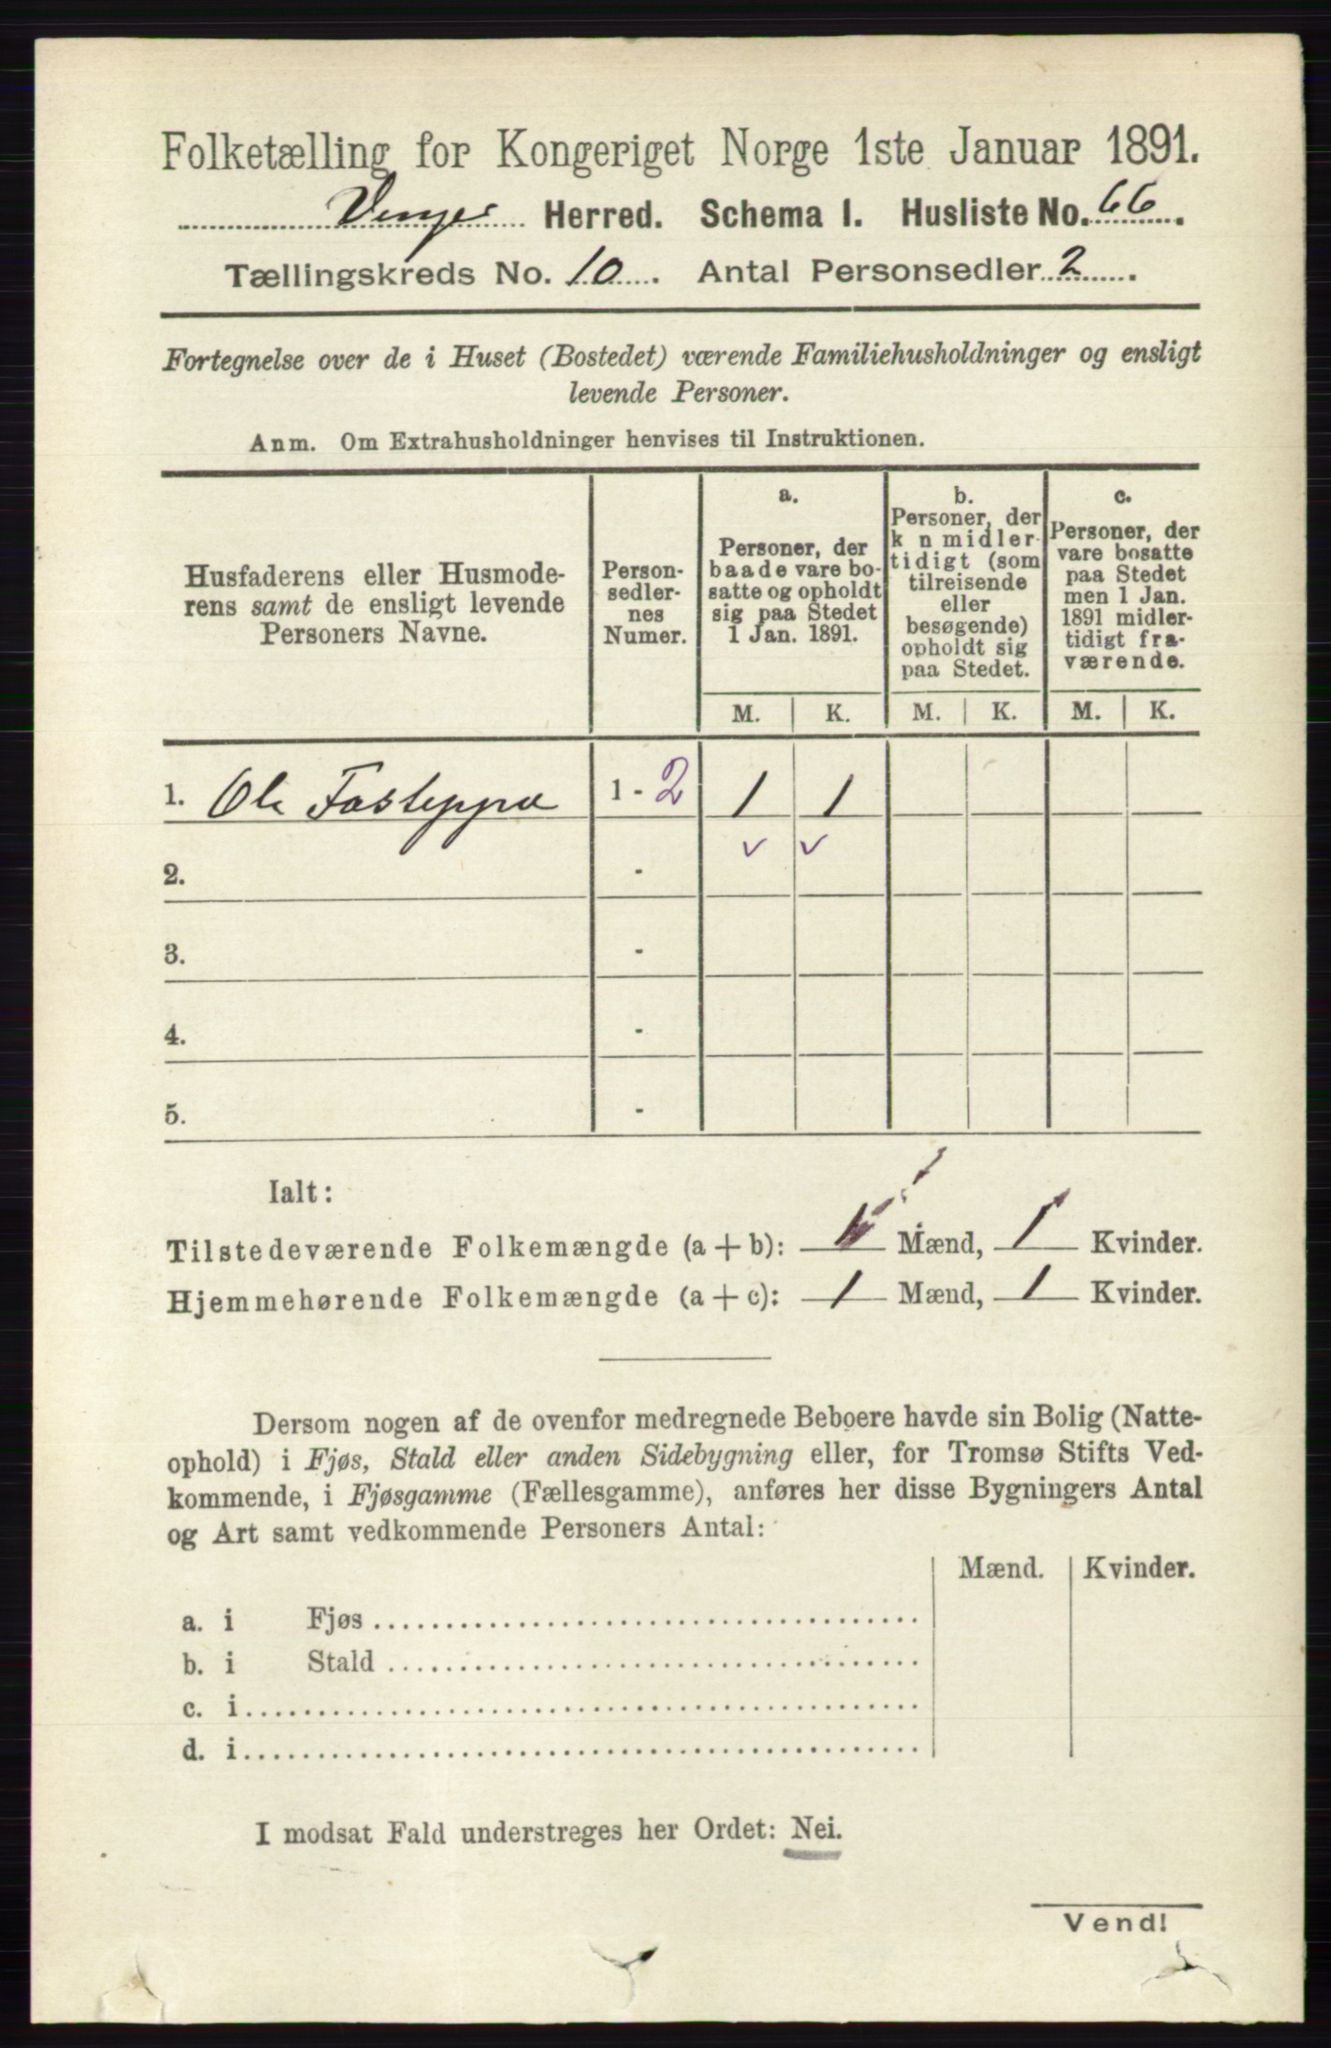 Folketælling for Kongeriget Norge 1ste Januar 1891.
Vinger Herred. Schema I. Husliste No. 66.
Tællingskreds No. 10. Antal Personsedler 2.
Fortegnelse over de i Huset (Bostedet) værende Familiehusholdninger og ensligt
levende Personer.
Anm. Om Extrahusholdninger henvises til Instruktionen.
Husfaderens eller Husmode-
rens samt de ensligt levende
Personers Navne.
Person-
sedler-
nes
Numer.
a.
Personer, der
baade vare bo-
satte og opholdt
sig paa Stedet
1 Jan. 1891.
b.
Personer, der
k n midler-
tidigt (som
tilreisende
eller
besøgende)
opholdt sig
paa Stedet.
c.
Personer, der
vare bosatte
paa Stedet
men 1 Jan.
1891 midler-
tidigt fra-
værende.
M. K. M. K. M. K.
1. Ole 1 - 2 1 1
2. -
3. -
4. -
5. -
Ialt:
Tilstedeværende Folkemængde (a + b): Mænd, 1 Kvinder.
Hjemmehørende Folkemængde (a + c): 1 Mænd, 1 Kvinder.
Dersom nogen af de ovenfor medregnede Beboere havde sin Bolig (Natte-
ophold) i Fjøs, Stald eller anden Sidebygning eller, for Tromsø Stifts Ved-
kommende, i Fjøsgamme (Fællesgamme), anføres her disse Bygningers Antal
og Art samt vedkommende Personers Antal:
Mænd. Kvinder.
a. i Fjøs
b. i Stald
c. i
d. i
I modsat Fald understreges her Ordet: Nei.
Vend!